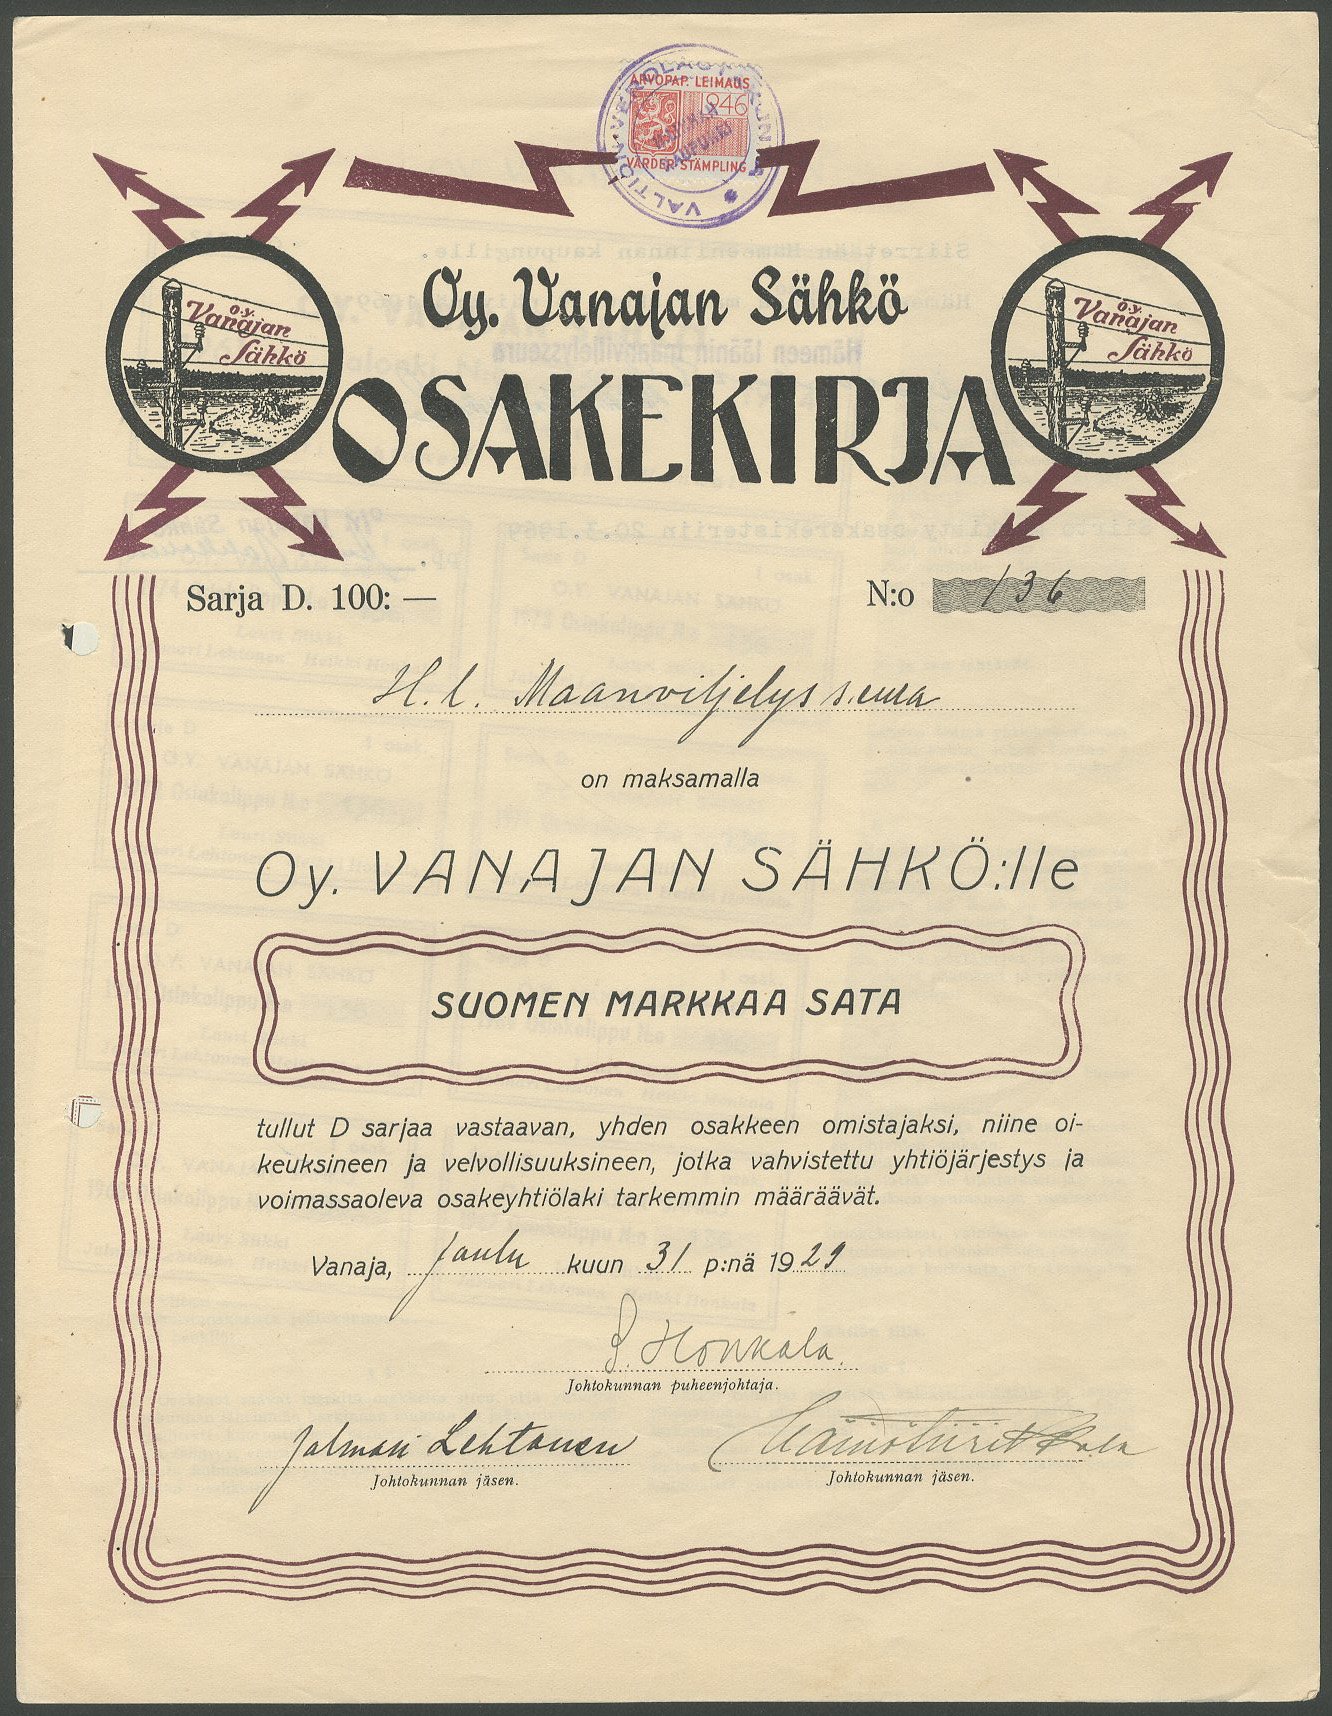 ARVOPAP. LEIMAUS
1946
VÄRDEP. STÄMPLING
Oy. Vanajan Sähkö
O.Y.
Vanajan
Sähkö
O.Y.
Vanajan
Sähkö
OSAKEKIRJA
Sarja D. 100: —
N:o 136
H. l. Maanviljelysseura
on maksamalla
Oy. VANAJAN SÄHKÖ:lle
SUOMEN MARKKAA SATA
tullut D sarjaa vastaavan, yhden osakkeen omistajaksi, niine oi-
keuksineen ja velvollisuuksineen, jotka vahvistettu yhtiöjärjestys ja
voimassaoleva osakeyhtiölaki tarkemmin määräävät.
Vanaja, Joulu kuun 31 p:nä 1929
Honkala.
Johtokunnan puheenjohtaja.
Jalmari Lehtonen
Johtokunnan jäsen.
Johtokunnan jäsen.